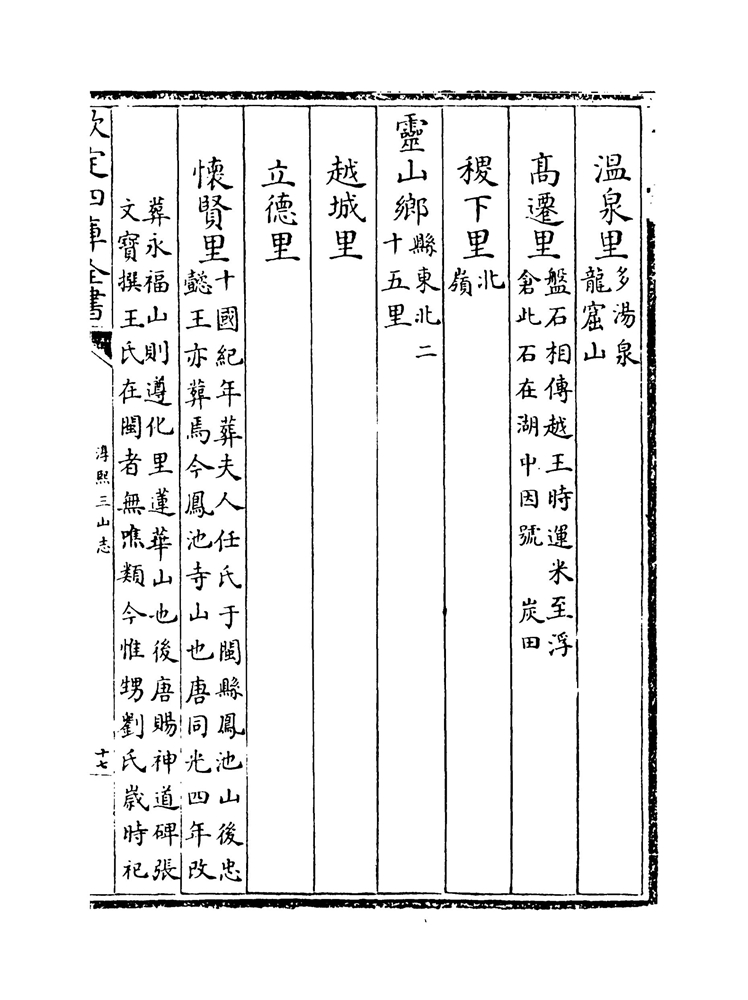 溫泉里多湯泉
龍窟山
髙遷里盤石相傳越王時運米至浮
倉此石在湖中因號　炭田
稷下里北
嶺
靈山鄉縣東北二
十五里
越城里
立德里
懷賢里十國紀年葬夫人任氏于閩縣鳳池山後忠
懿王亦葬焉今鳳池寺山也唐同光四年改
葬永福山則遵化里蓮華山也後唐賜神道碑張
文寶撰王氏在閩者無噍類今惟甥劉氏歲時祀
欽定四庫全書
淳熙三山志
十七